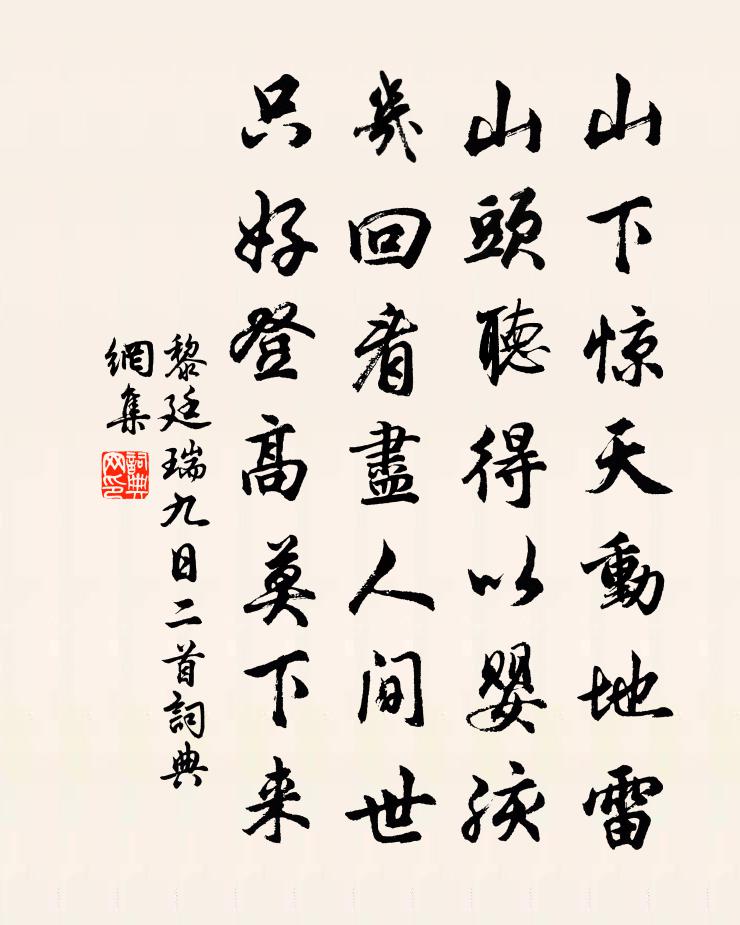 山下惊天動地雷
山頭聽得以嬰孩
幾回看盡人间世
只好登高莫下来
黎廷瑞九日二首詞典
網集
詞典
网印